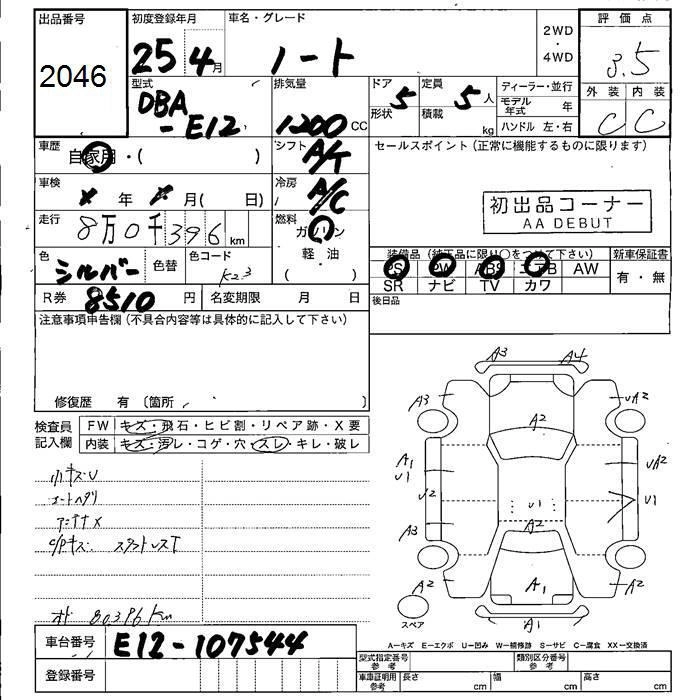 出品番号 初度登録年月 車名・グレード 2WD・4WD 評価点
2046 25 4月 ノート 3.5
型式 排気量 ドア形状 定員 積載 ディーラー・並行 外装 内装
DBA-E12 1200 CC 5 5人 kg モデル年式 年 C C
ハンドル 左・右
車歴 自家用・( ) シフト A/T セールスポイント(正常に機能するものに限ります)
車検 X 年 X 月( 日) 冷房 A/C
初出品コーナー
AA DEBUT
走行 8万0千396 km 燃料 ガソリン 軽・油 ( )
色 シルバー 色替 色コード K23
装備品(純正品に限り○をつけて下さい) 新車保証書
PS PW ABS エアB AW 有・無
SR ナビ TV カワ
R券 8510 円 名変期限 月 日 後日品
注意事項申告欄(不具合内容等は具体的に記入して下さい)
修復歴 有〔箇所
検査員記入欄 FW キズ・飛石・ヒビ割・リペア跡・X要
内装 キズ・汚レ・コゲ・穴・スレ・キレ・破レ
小キズU
シートヘタリ
アンテナX
C/Pキズ
オド 80396 Km
A3 A4
A3 A2 UA2
A1 U1 UA2
U2 U1 U1
A3 A2
A2 A1 A2
スペア A1
A-キズ E-エクボ U-凹み W-補修跡 S-サビ C-腐食 XX-交換済
車台番号 E12-107544
登録番号
型式指定番号参考 類別区分番号参考
車庫証明用参考 長さ cm 幅 cm 高さ cm